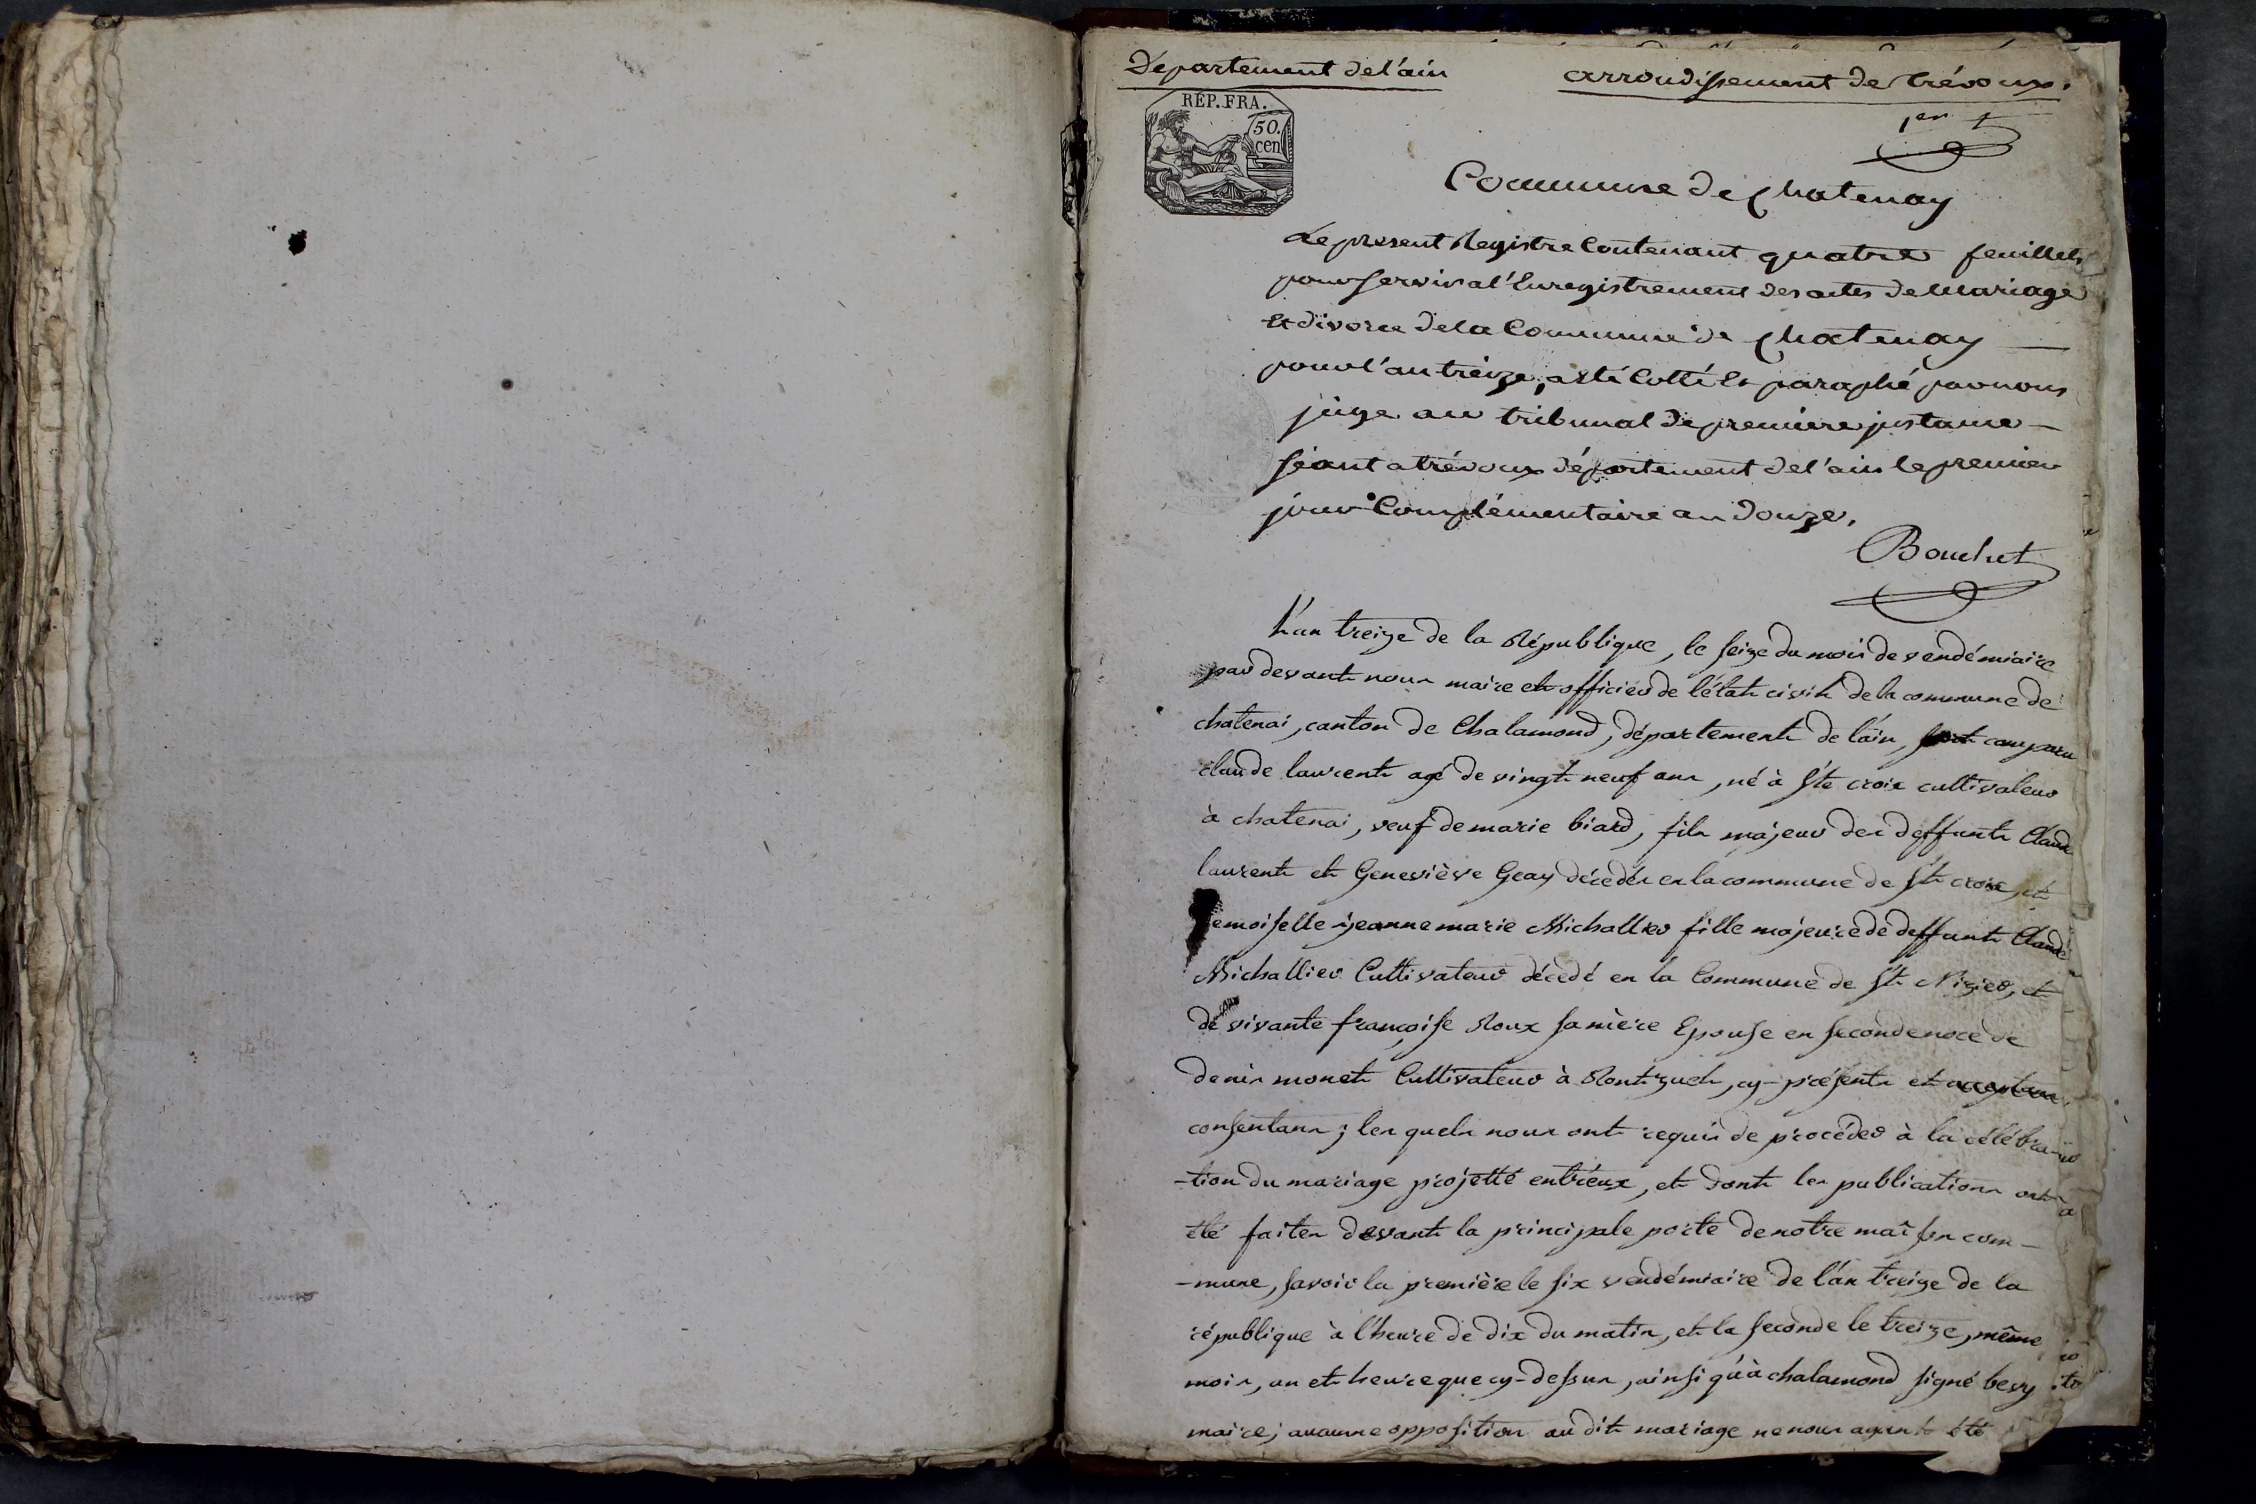 Département de l'ain
arrondissement de trévoux.
RÉP. FRA.
50.
cen
1er
Commune de Chatenay
Le present Registre Contenant quatre feuillets
pour servir a l'Enregistrement des actes de Mariage
Et divorce de la Commune de Chatenay
pour l'an treize, a été Cotté Et paraphé par nous
juge au tribunal de premiere jnstance
séant a trévoux département de l'ain le premier
jour Complémentaire an Douze.
Bouchet
L'an treize de la République, le seize du mois de vendémiaire
par devant nous maire et officier de l'état civil de la commune de
chatenai, canton de Chalamond, département de l'ain, sont comparu
claude laurent agé de vingt neuf ans, né à ste croix cultivateur
à chatenai, veuf de marie biard, fils majeur des deffunts Claude
laurent et Geneviève Geay décédés en la commune de ste croix, et
demoiselle jeanne marie Michallier fille majeure de deffunt Claude
Michallier Cultivateur décédé en la Commune de st Nizier, et
de vivante françoise Roux sa mère Epouse en seconde noce de
denis monet Cultivateur à Rontzuel, cy-présents et
consentans; les quels nous ont requis de procéder à la célébra-
-tion du mariage projetté entréux, et dont les publications ont
été faites devant la principale porte de notre maison com-
-mune, savoir la première le six vendémiaire de l'an treize de la
république à l'heure de dix du matin, et la seconde le treize, même
mois, an et heure que cy-dessus, ainsi qu'à chalamond signé bevy
maire; aucunne opposition au dit mariage ne nous ayant été